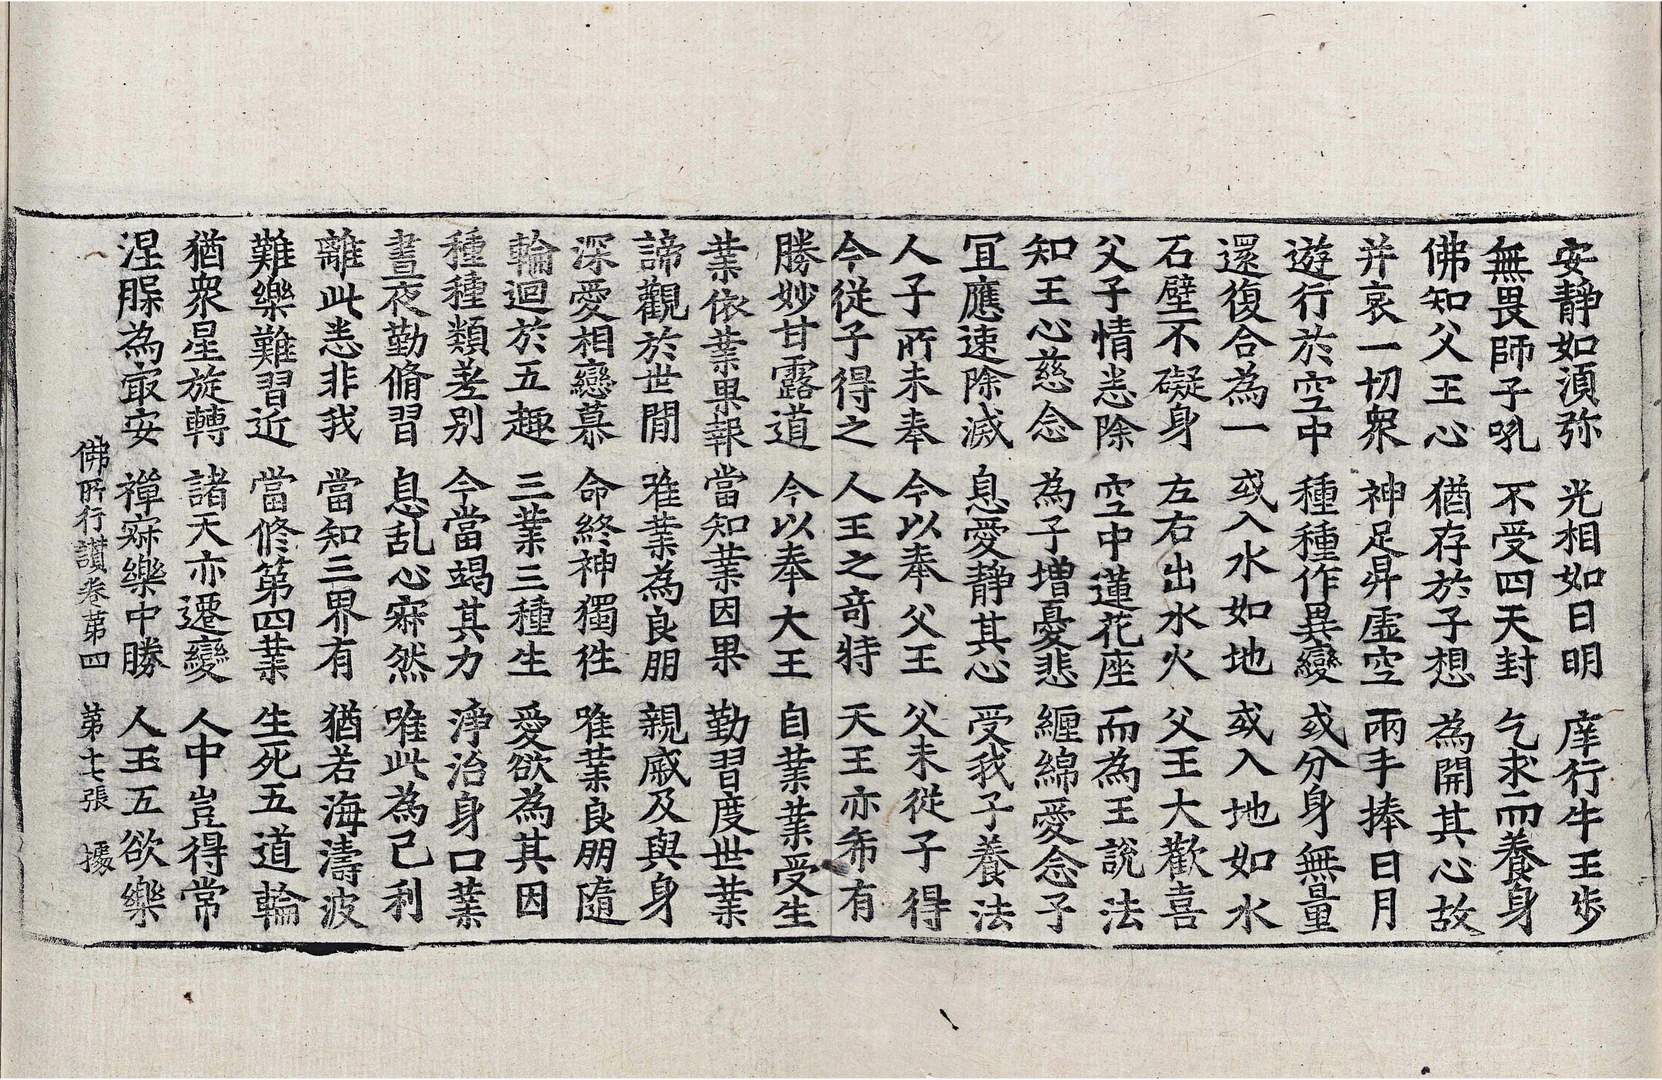 安靜如湏弥 光相如日明 庠行牛王步
無畏師子吼 不受四天封 乞求而養身
佛知父王心 猶存於子想 為開其心故
并哀一切衆 神足昇虛空 兩手捧日月
遊行於空中 種種作異變 或分身無量
還復合為一 或入水如地 或入地如水
石壁不礙身 左右出水火 父王大歡喜
父子情悉除 空中蓮花座 而為王說法
知王心慈念 為子增憂悲 纏綿愛念子
冝應速除滅 息愛靜其心 受我子養法
人子所未奉 今以奉父王 父未從子得
今從子得之 人王之竒特 天王亦希有
勝妙甘露道 今以奉大王 自業業受生
業依業果報 當知業因果 勤習度世業
諦觀於世閒 唯業為良朋 親戚及與身
深愛相戀慕 命終神獨徃 唯業良朋隨
輪迴於五趣 三業三種生 愛欲為其因
種種類差別 今當竭其力 淨治身口業
晝夜勤脩習 息乱心寂然 唯此為己利
離此悉非我 當知三界有 猶若海濤波
難樂難習近 當修第四業 生死五道輪
猶衆星旋轉 諸天亦遷變 人中豈得常
涅槃為最安 禪寂樂中勝 人王五欲樂
佛所行讃卷第四 第十七張 據